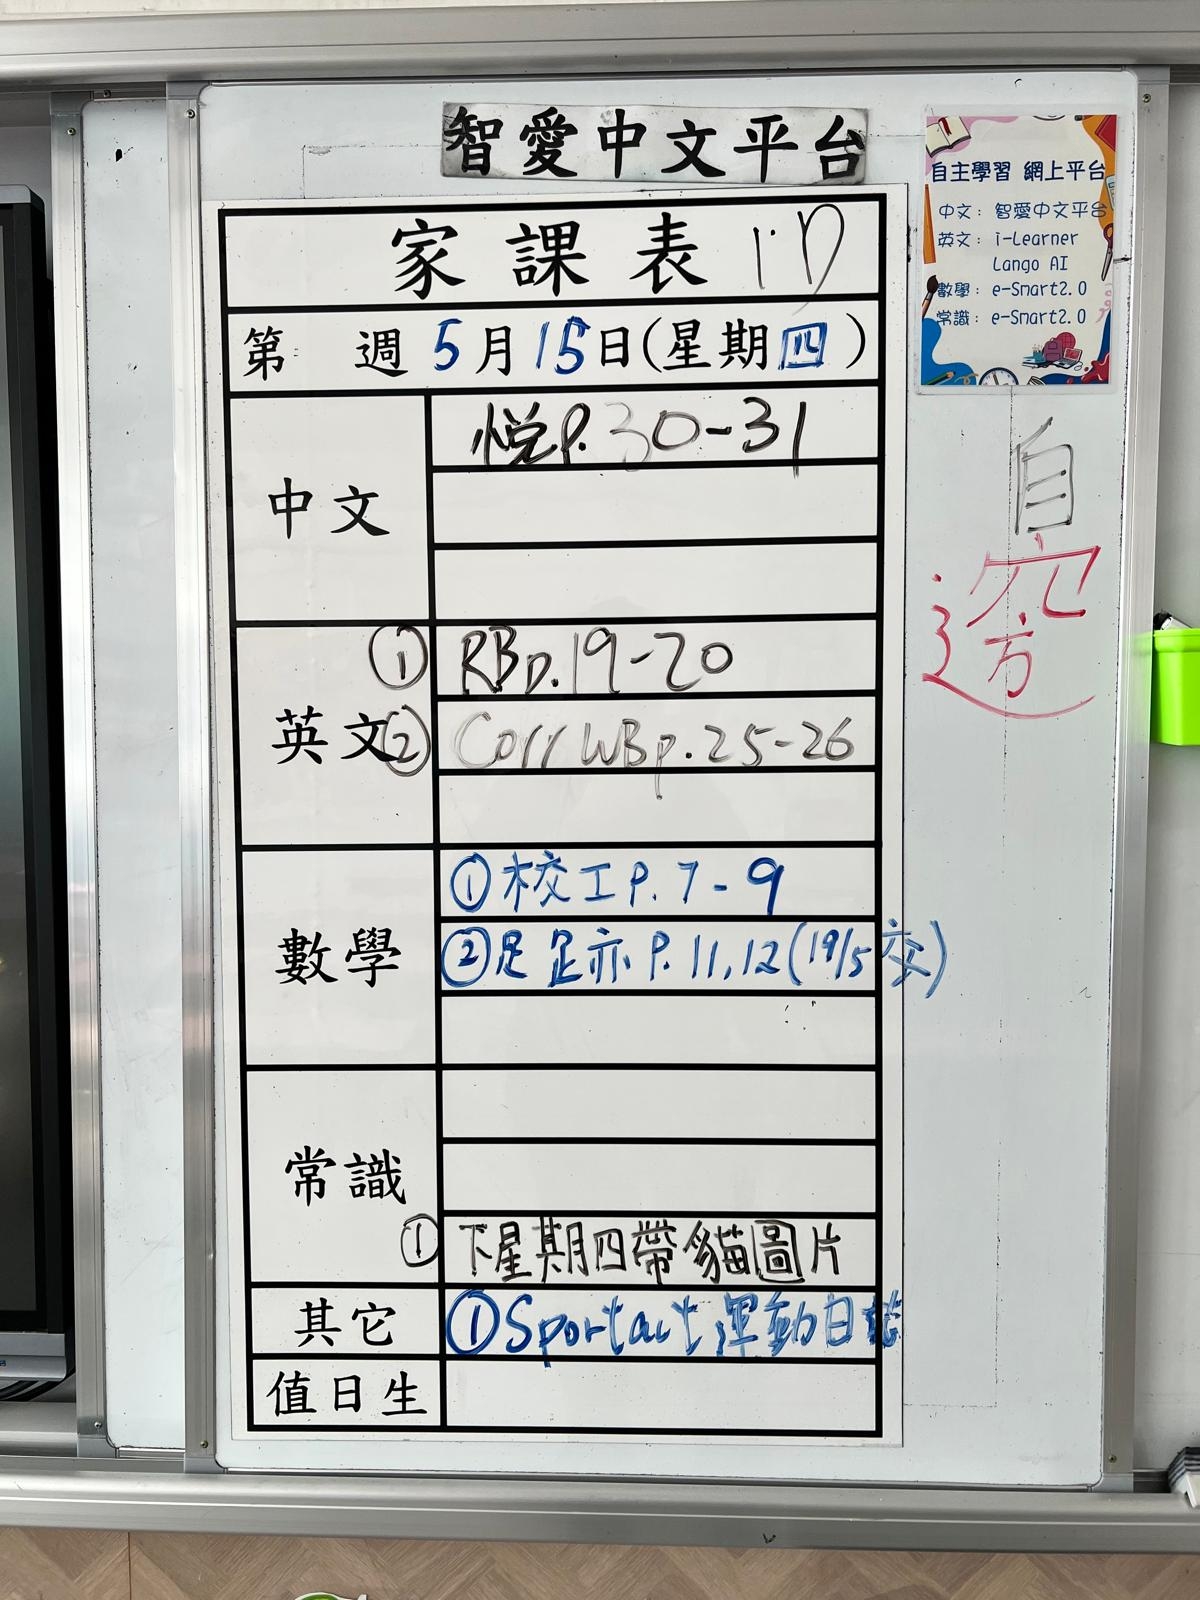 智愛中文平台
家課表 1D
第 週 5月15日(星期四)
中文
悦P.30-31
英文
① RBp.19-20
② Corr WBp.25-26
數學
①校工P.7-9
②足 P.11,12(19/5交)
常識
① 下星期四帶貓圖片
其它
①Sportact運動日誌
值日生
自主學習 網上平台
中文：智愛中文平台
英文：i-Learner
Lango AI
數學：e-Smart2.0
常識：e-Smart2.0
自